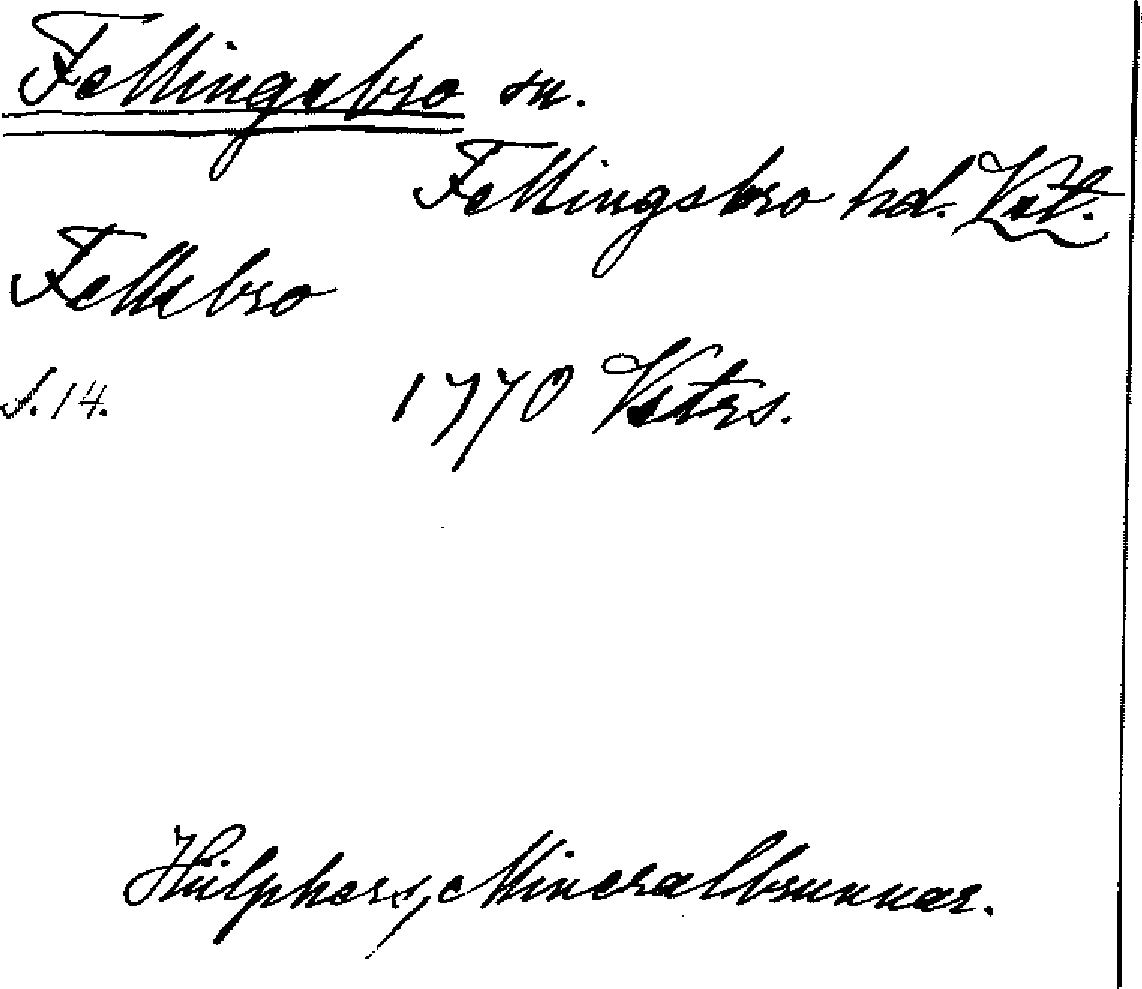 Fellingsbro sn.
Fellingsbro hd. Vst.
Fellsbro
S. 14. 1770 Vstrs.
Hülphers, Mineralbrunnar.